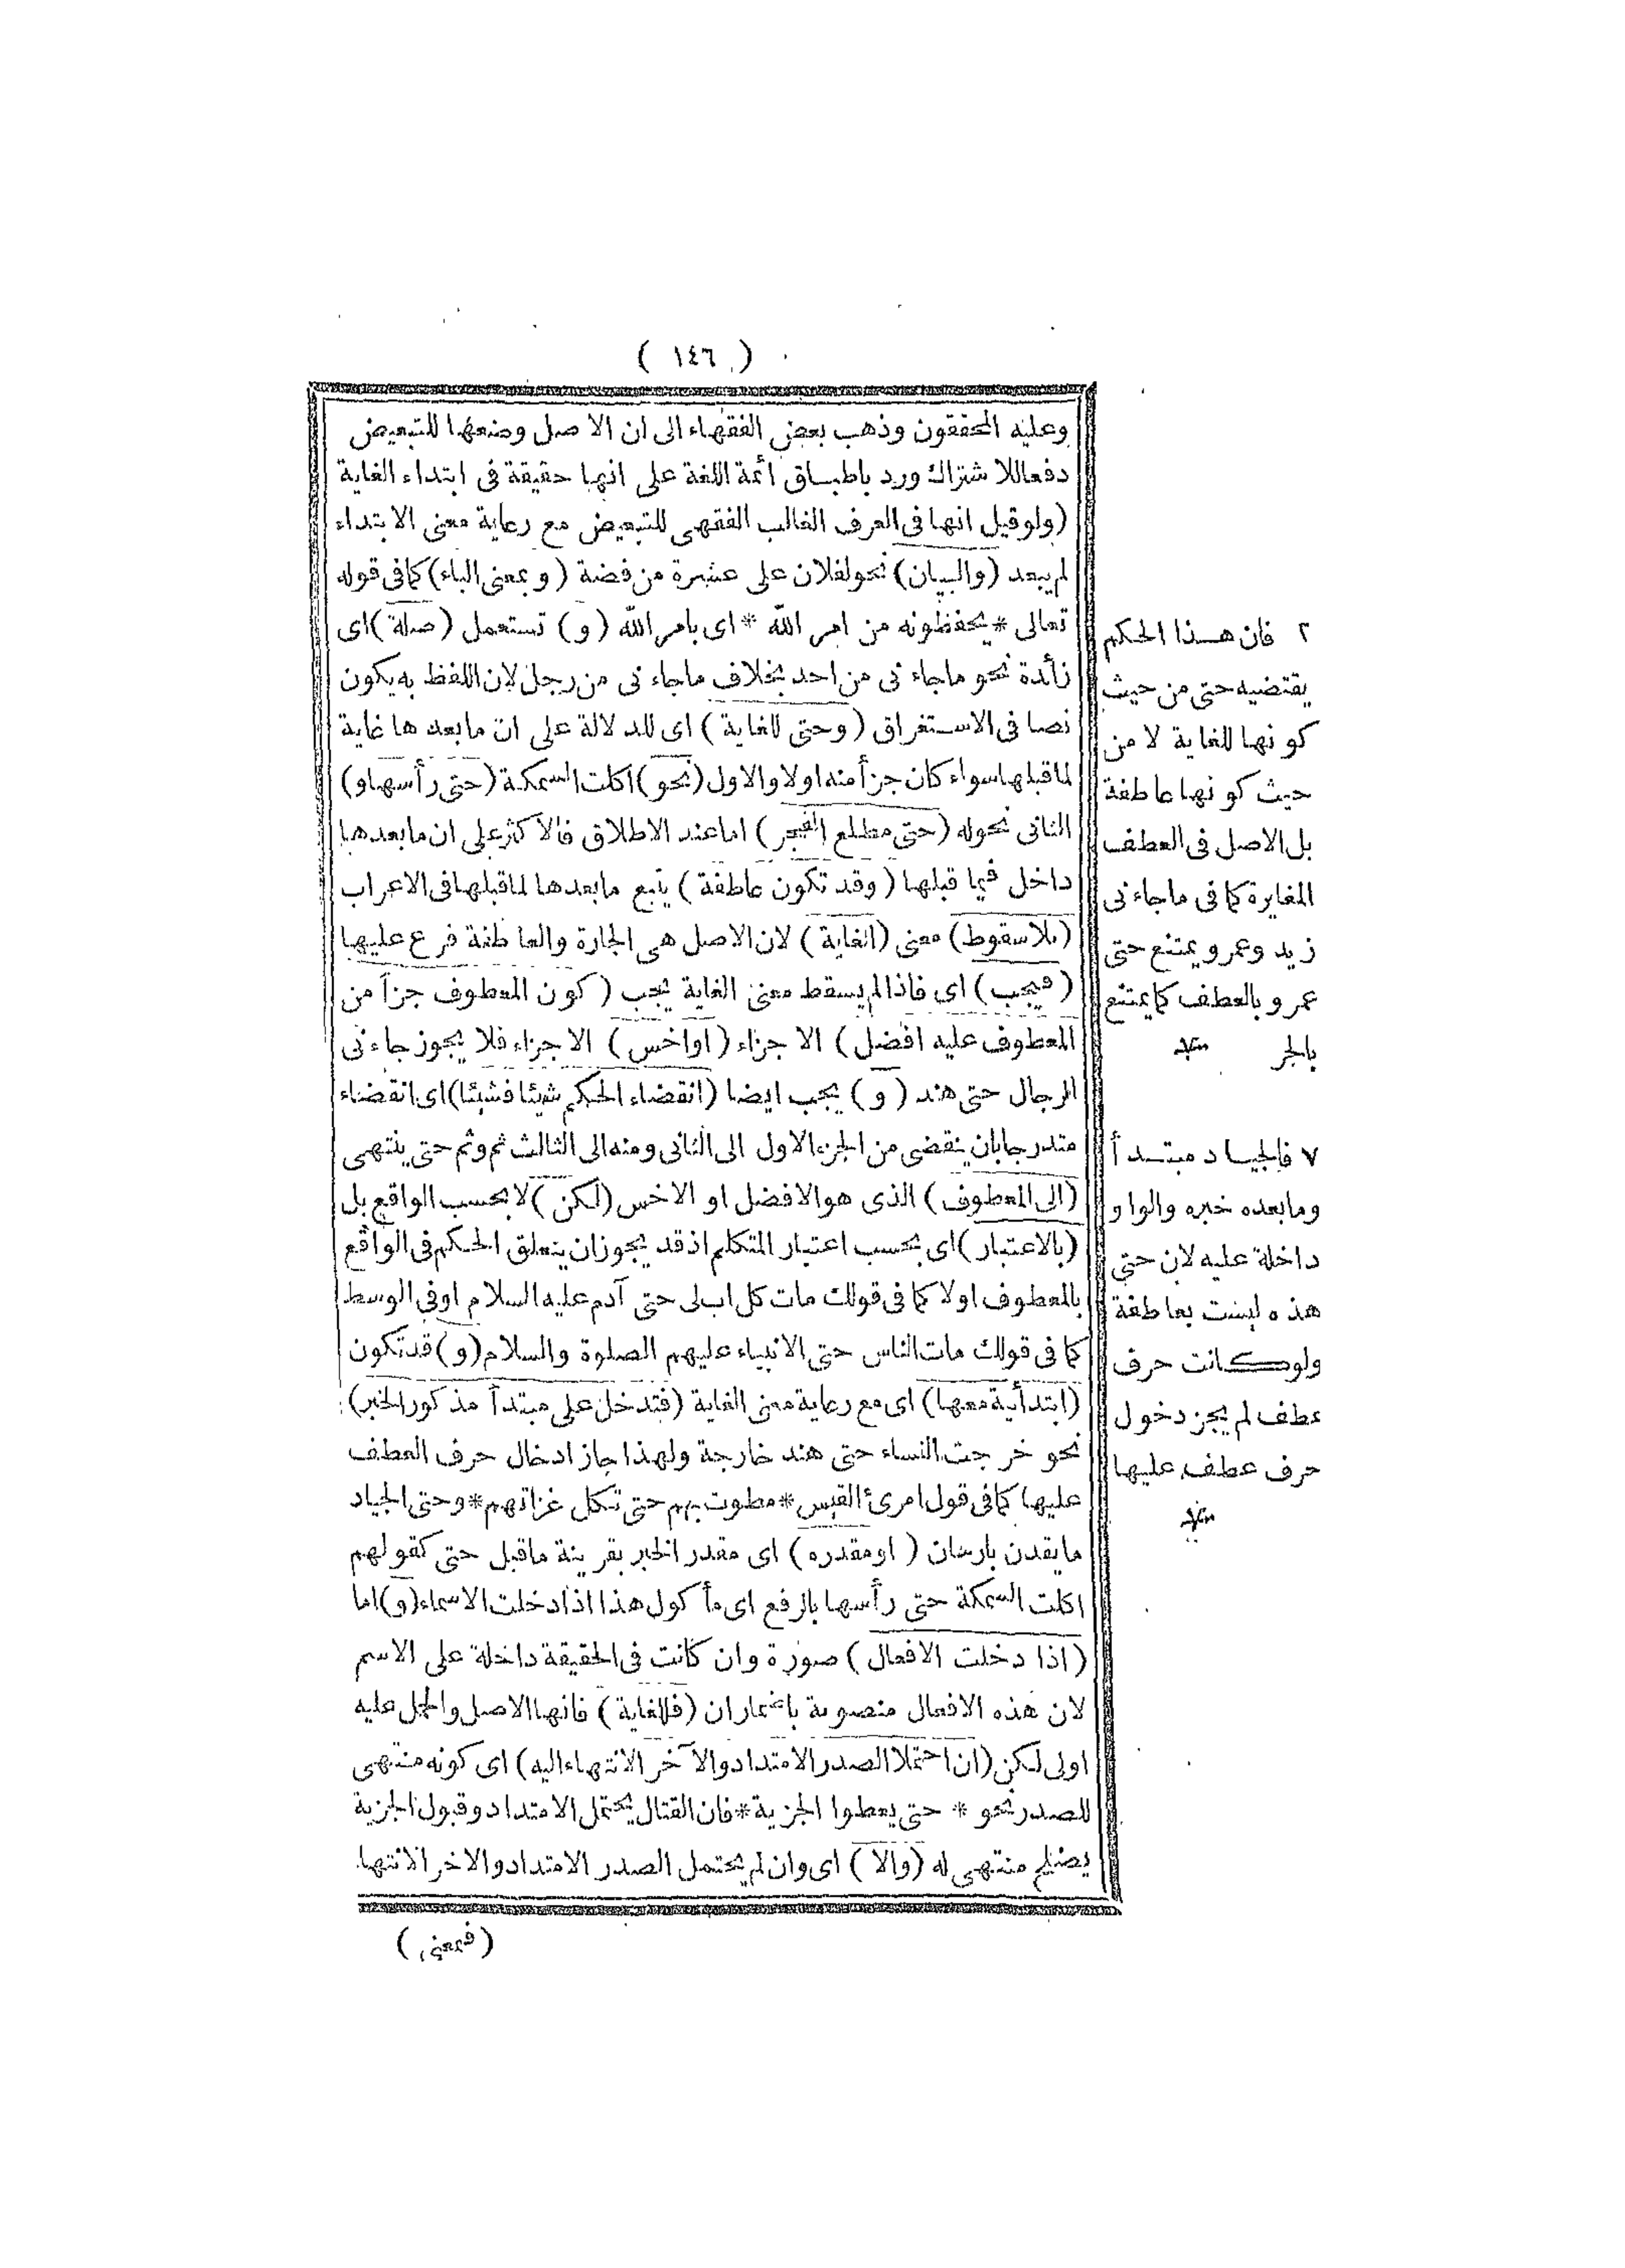 ( ١٤٦ )
وعليه المحققون وذهب بعض الفقهاء الى ان الاصل وضعها للتبعيض
دفعا للاشتراك ورد باطباق أئمة اللغة على انها حقيقة فى ابتداء الغاية
(ولو قيل انها فى العرف الغالب الفقهى للتبعيض مع رعاية معنى الابتداء
لم يبعد (والبيان) نحو لفلان على عشرة من فضة (وبمعنى الباء) كما فى قوله
تعالى * يحفظونه من امر الله * اى بامر الله (و) تستعمل (صلة) اى
زائدة نحو ما جاءنى من احد بخلاف ما جاءنى من رجل لان اللفظ به يكون
نصا فى الاستغراق (وحتى للغاية) اى للدلالة على ان ما بعدها غاية
لما قبلها سواء كان جزأ منه اولا والاول (نحو) اكلت السمكة (حتى رأسها و)
الثانى نحو له (حتى مطلع الفجر) اما عند الاطلاق فالاكثر على ان ما بعدها
داخل فيما قبلها (وقد تكون عاطفة) يتبع ما بعدها لما قبلها فى الاعراب
(بلا سقوط) معنى (الغاية) لان الاصل هى الجارة والعاطفة فرع عليها
(فيجب) اى فاذا لم يسقط معنى الغاية يجب (كون المعطوف جزأ من
المعطوف عليه افضل) الاجزاء (او اخس) الاجزاء فلا يجوز جاءنى
الرجال حتى هند (و) يجب ايضا (انقضاء الحكم شيئا فشيئا) اى انقضاء
متدرجا بان ينقضى من الجزء الاول الى الثانى ومنه الى الثالث ثم وثم حتى ينتهى
(الى المعطوف) الذى هو الافضل او الاخس (لكن) لا بحسب الواقع بل
(بالاعتبار) اى بحسب اعتبار المتكلم اذ قد يجوز ان يتعلق الحكم فى الواقع
بالمعطوف اولا كما فى قولك مات كل اب لى حتى آدم عليه السلام او فى الوسط
كما فى قولك مات الناس حتى الانبياء عليهم الصلوة والسلام (و) قد تكون
(ابتدائية معها) اى مع رعاية معنى الغاية (فتدخل على مبتدأ مذكور الخبر)
نحو خرجت النساء حتى هند خارجة ولهذا جاز ادخال حرف العطف
عليها كما فى قول امرئ القيس * مطوت بهم حتى تكل غزاتهم * وحتى الجياد
ما يقدن بارسان (او مقدره) اى مقدر الخبر بقرينة ما قبل حتى كقولهم
اكلت السمكة حتى رأسها بالرفع اى مأكول هذا اذا دخلت الاسماء (و) اما
(اذا دخلت الافعال) صورة وان كانت فى الحقيقة داخلة على الاسم
لان هذه الافعال منصوبة باضمار ان (فللغاية) فانها الاصل والحمل عليه
اولى لكن (ان احتملا الصدر الامتداد والآخر الانتهاء اليه) اى كونه منتهى
للصدر نحو * حتى يعطوا الجزية * فان القتال يحتمل الامتداد وقبول الجزية
يصلح منتهى له (والا) اى وان لم يحتمل الصدر الامتداد والاخر الانتهاء
(فبمعنى)
٢ فان هذا الحكم
يقتضيه حتى من حيث
كونها للغاية لا من
حيث كونها عاطفة
بل الاصل فى العطف
المغايرة كما فى ما جاءنى
زيد وعمرو يمتنع حتى
عمرو بالعطف كما يمتنع
بالجر
٧ فالجياد مبتدأ
وما بعده خبره والواو
داخلة عليه لان حتى
هذه ليست بعاطفة
ولو كانت حرف
عطف لم يجز دخول
حرف عطف عليها